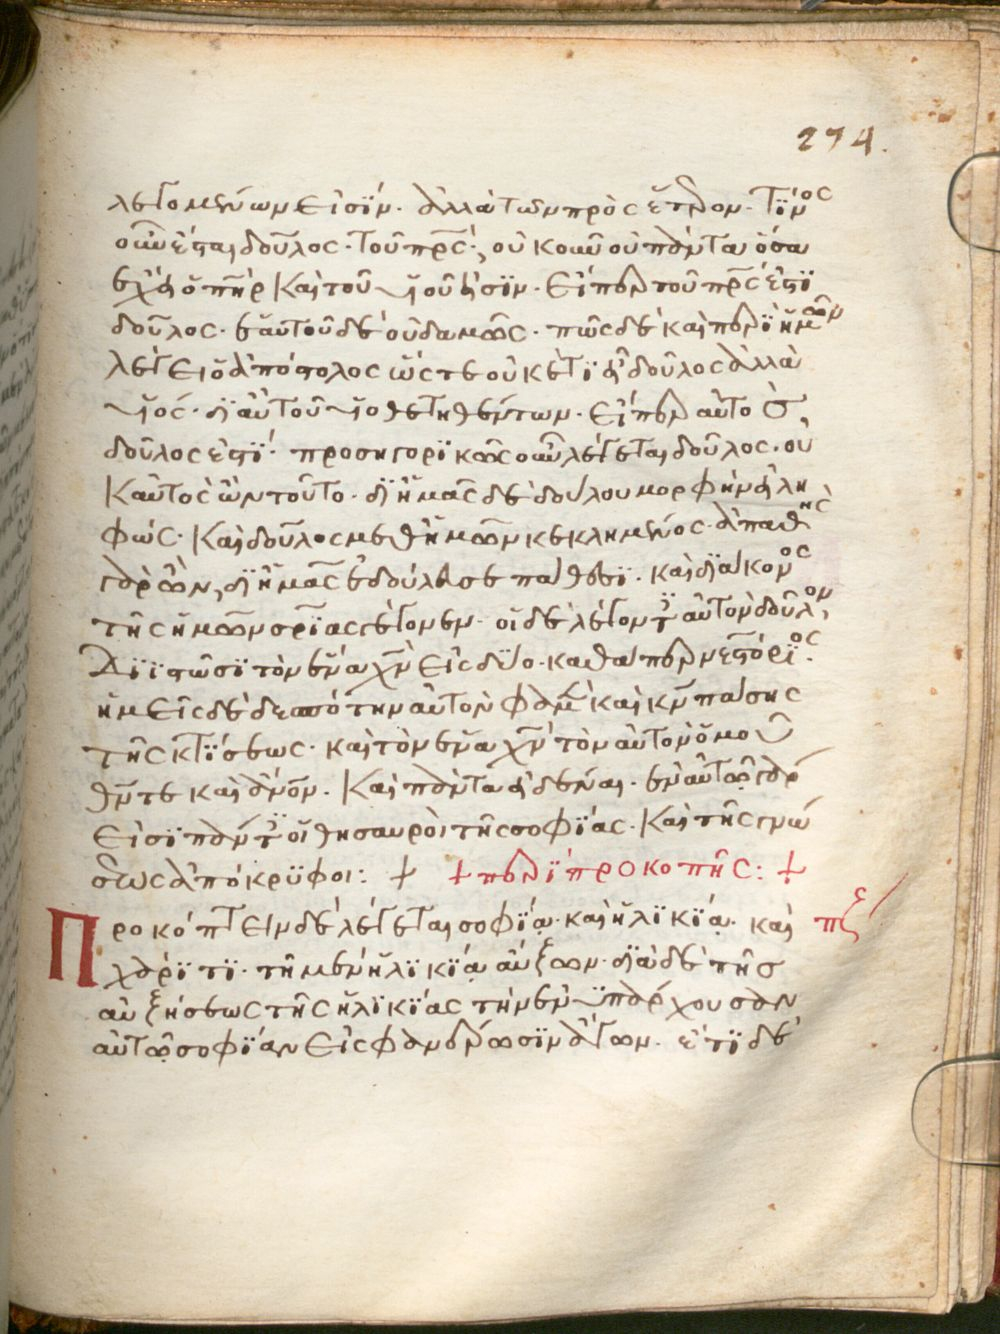 274.
λεγομένων εἰσΐν. ἀλλὰ τῶν πρὸς ἕτερον. τΐνος
οὖν ἔσται δοῦλος. τοῦ πρς; οὐκοῦν οὐ πάντα ὅσα
ἔχει ὁ πηρ καὶ τοῦ υἱοῦ εἰσΐν. εἴπερ τοῦ πρς ἐστΐ
δοῦλος. ἑαυτοῦ δὲ οὐδαμῶς. πῶς δὲ καὶ περῒ ἡμῶν
λέγει ὁ ἀπόστολος ὥστε οὐκέτῒ εἶ δοῦλος ἀλλὰ
υἱός. δϊ αὐτοῦ υἱοθετηθέντων. εἴπερ αὐτὸς
δοῦλος ἐστΐ. προσηγορϊκῶς οὖν λέγεται δοῦλος. οὐ
κ αὐτὸς ὢν τοῦτο. δϊ ἡμᾶς δὲ δούλου μορφὴν εἰλη
φώς. καὶ δοῦλος μεθ ἡμῶν κεκλημένος. ἀπαθὴς
γὰρ ὢν, δϊ ἡμᾶς ἐδούλευσε πάθεσϊ. καὶ δϊάκονος
τῆς ἡμῶν σρΐας γέγονεν. οἱ δὲ λέγοντες αὐτὸν δοῦλον,
δϊϊστῶσῒ τὸν ἕνα χν εἰς δύο. καθάπερ νεστόρϊος.
ἡμεῖς δὲ δεσπότην αὐτὸν φαμὲν καὶ κν πάσης
τῆς κτΐσεως. καὶ τὸν ἕνα χν τὸν αὐτὸν ὁμοῦ
θν τε καὶ ανον. καὶ πάντα εἰδέναι. ἐν αὐτῷ γάρ
εἰσϊ πάντες οἱ θησαυροὶ τῆς σοφΐας. καὶ τῆς γνώ
σεως ἀπόκρϋφοι: + + περῒ προκοπῆς: +
Προκόπτειν δὲ λέγεται σοφΐᾳ. καὶ ἡλϊκΐᾳ. καὶ πϛ
χάρϊτϊ. τῇ μὲν ἡλϊκΐᾳ αὔξων. δϊὰ δὲ τῆς
αὐξήσεως τῆς ἡλϊκΐας τὴν ἐνϋπάρχουσαν
αὐτῷ σοφΐαν εἰς φανέρωσϊν ἄγων. ἔτϊ δὲ